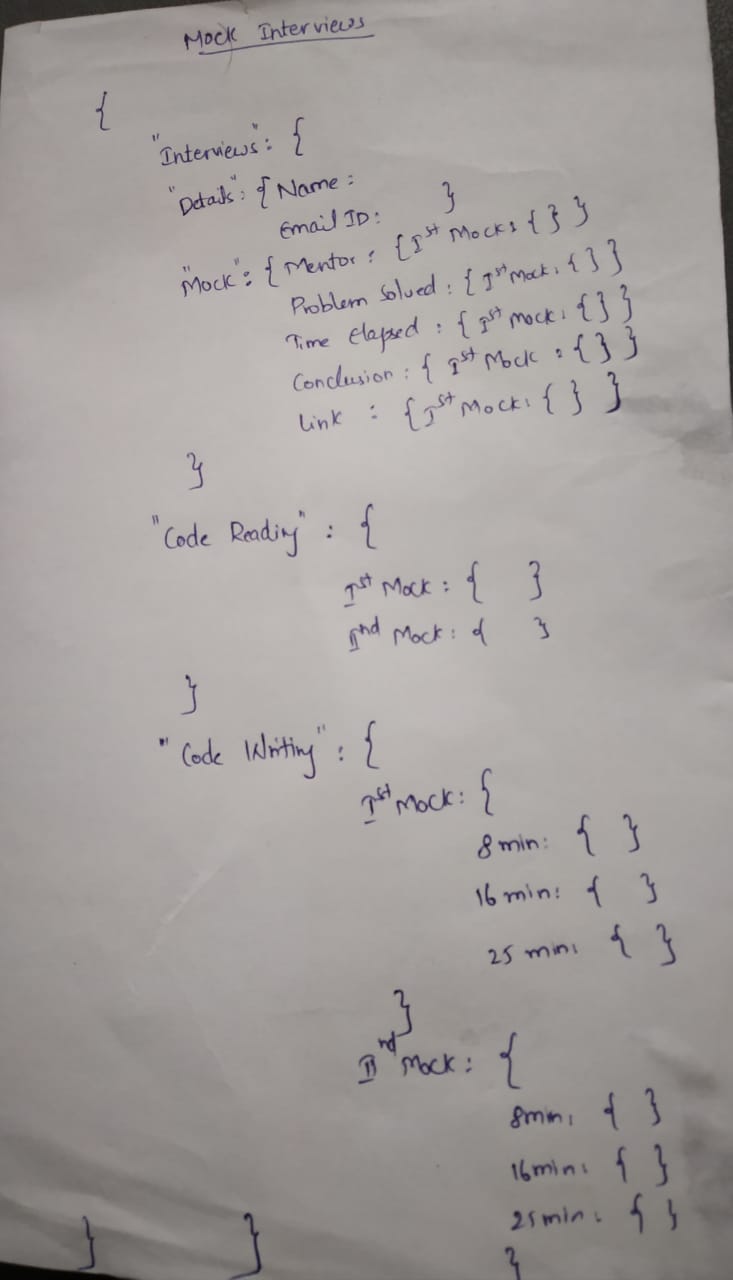 Mock Interviews
{
"Interviews": {
"Details": { Name:
Email ID: }
"Mock": { Mentor: { Ist Mock: { } }
Problem Solved: { Ist Mock: { } }
Time Elapsed: { Ist Mock: { } }
Conclusion: { Ist Mock: { } }
Link: { Ist Mock: { } }
}
"Code Reading": {
Ist Mock: { }
IInd Mock: { }
}
"Code Writing": {
Ist Mock: {
8 min: { }
16 min: { }
25 min: { }
}
IInd Mock: {
8min: { }
16min: { }
25min: { }
} } }